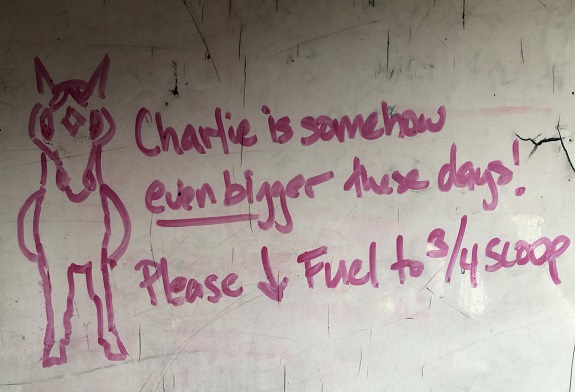 Charlie is somehow
even bigger these days!
Please ↓ Fuel to 3/4 scoop